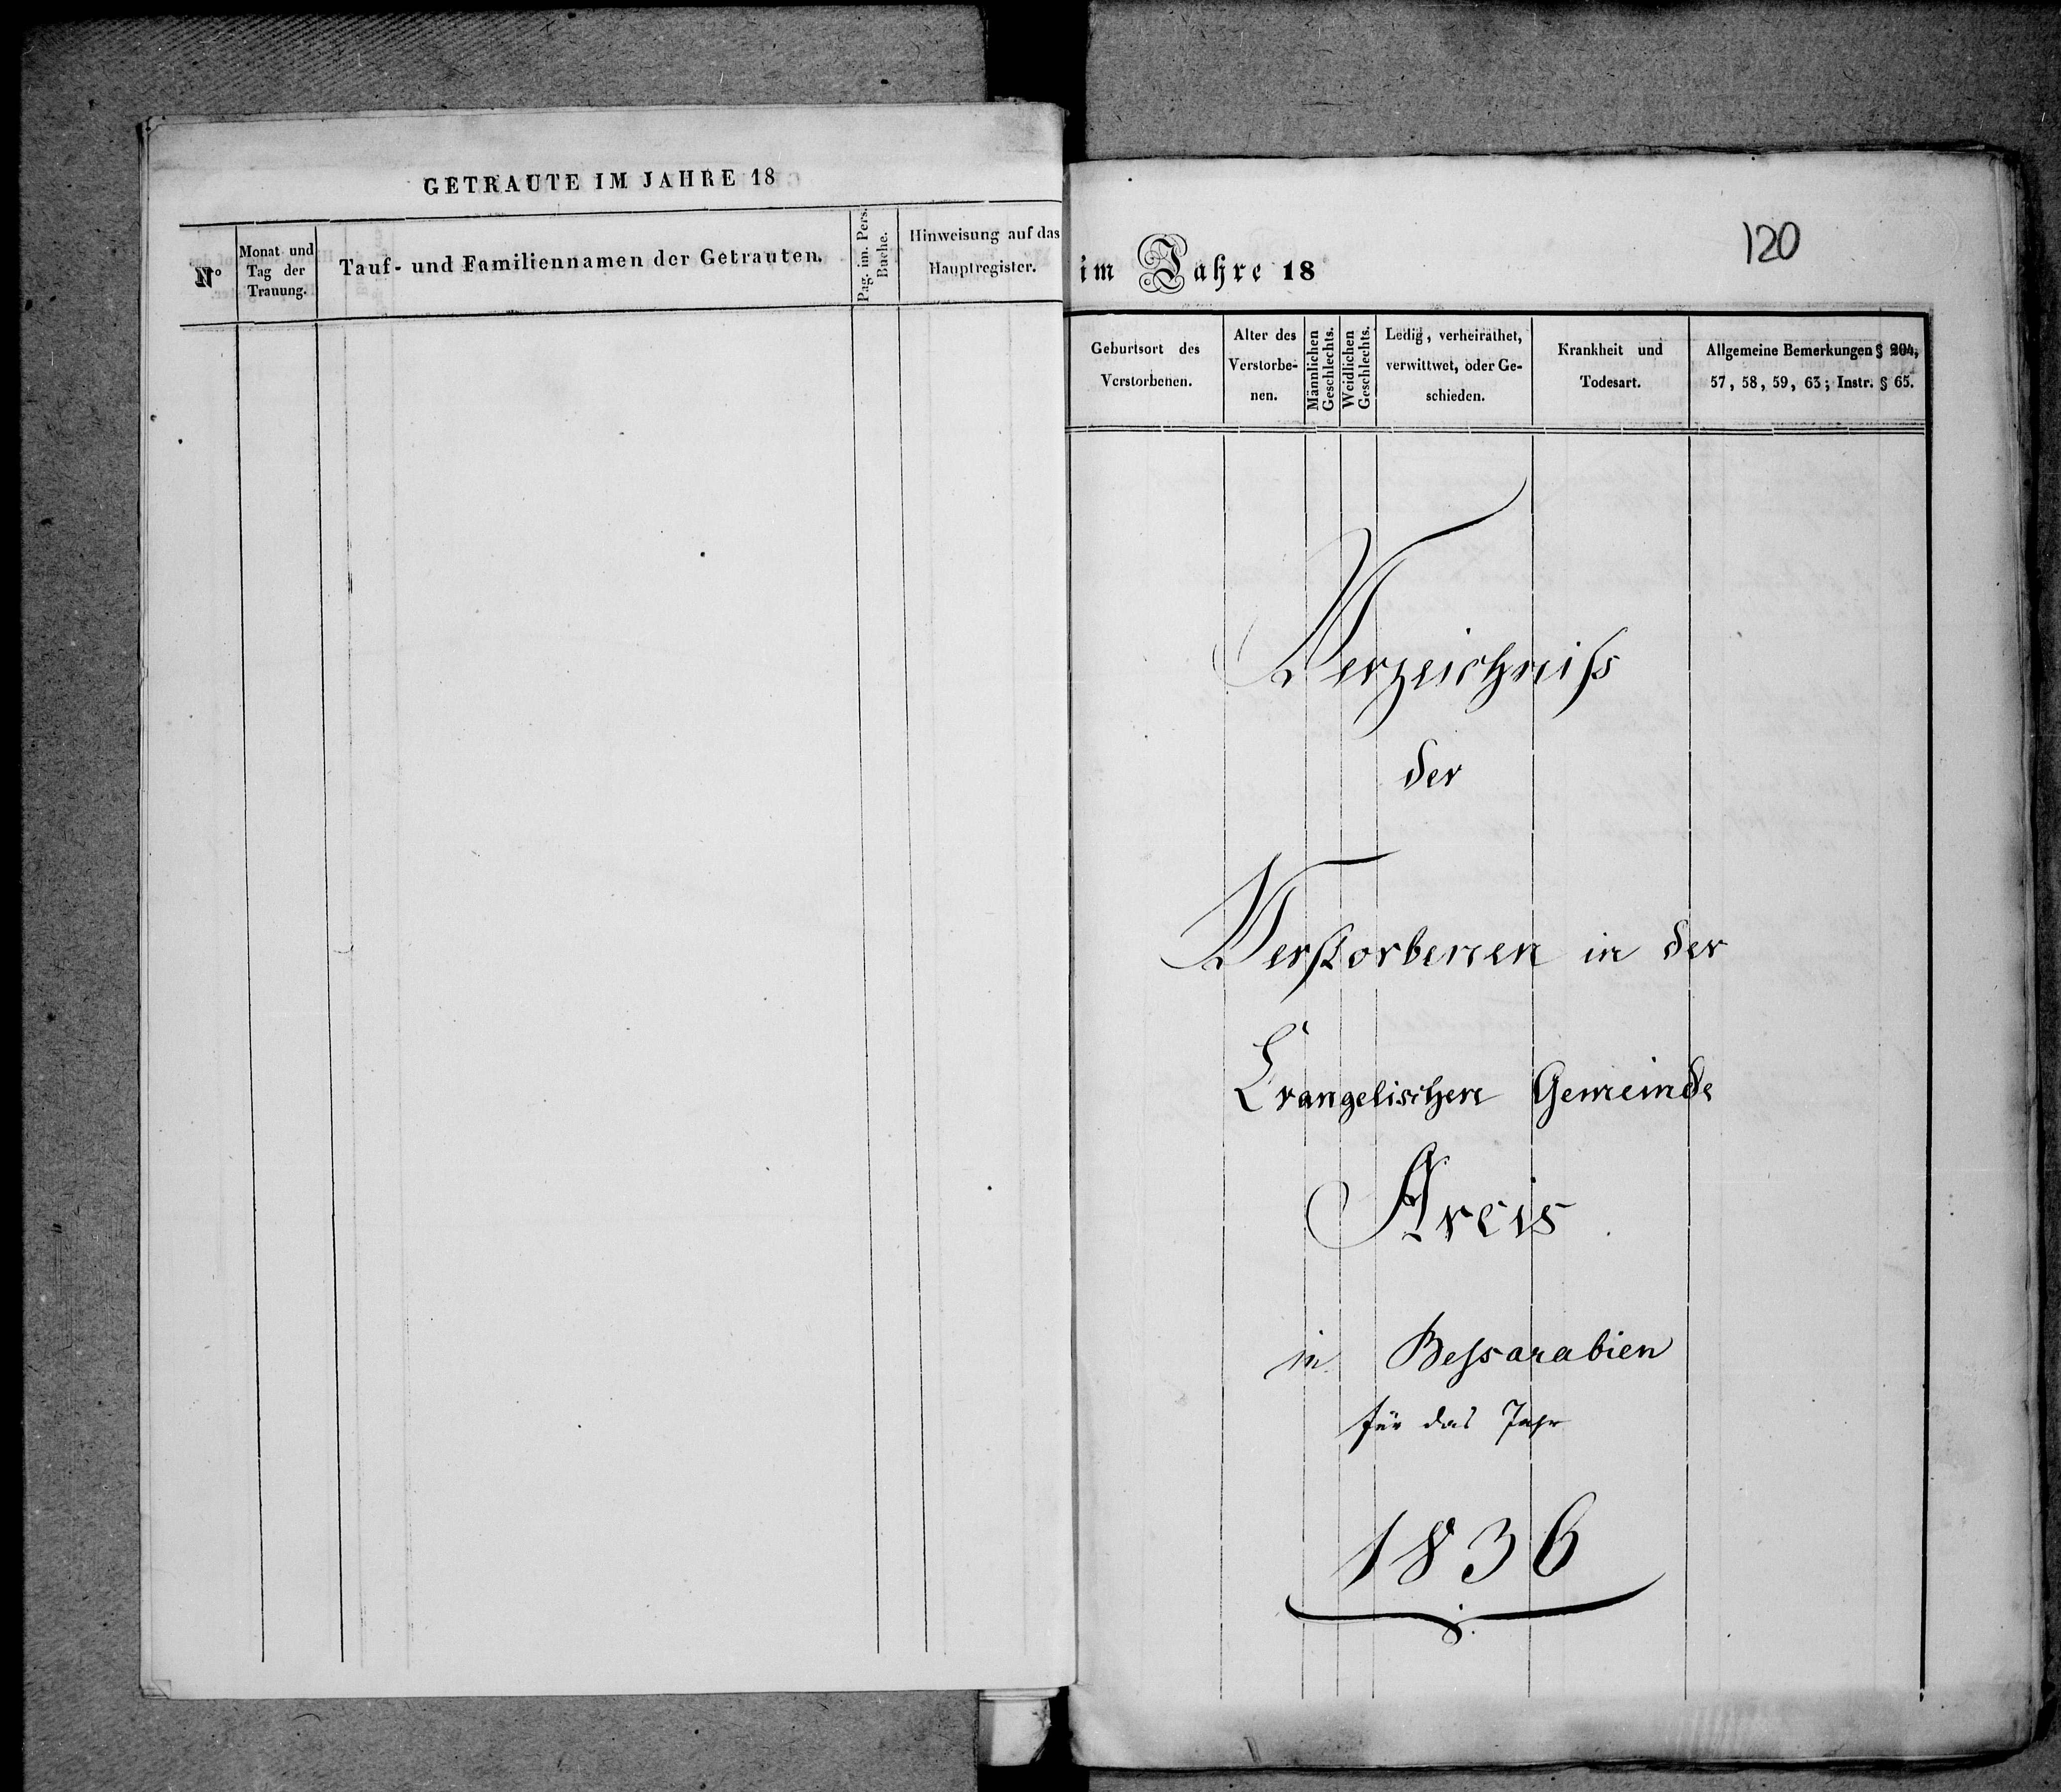 GETRAUTE IM JAHRE 18
N°
Monat und
Tag der
Trauung.
Tauf- und Familiennamen der Getrauten.
Pag. im. Pers.
Buche.
Hinweisung auf das
Hauptregister.
120
im Jahre 18
Geburtsort des
Verstorbenen.
Alter des
Verstorbe-
nen.
Männlichen
Geschlechts.
Weidlichen
Geschlechts.
Ledig, verheirathet,
verwittwet, oder Ge-
schieden.
Krankheit und
Todesart.
Allgemeine Bemerkungen § 204,
57, 58, 59, 63; Instr. § 65.
Verzeichniſs
der
Verstorbenen in der
Evangelischen Gemeinde
Arcis
in Beſsarabien
für das Jahr
1836